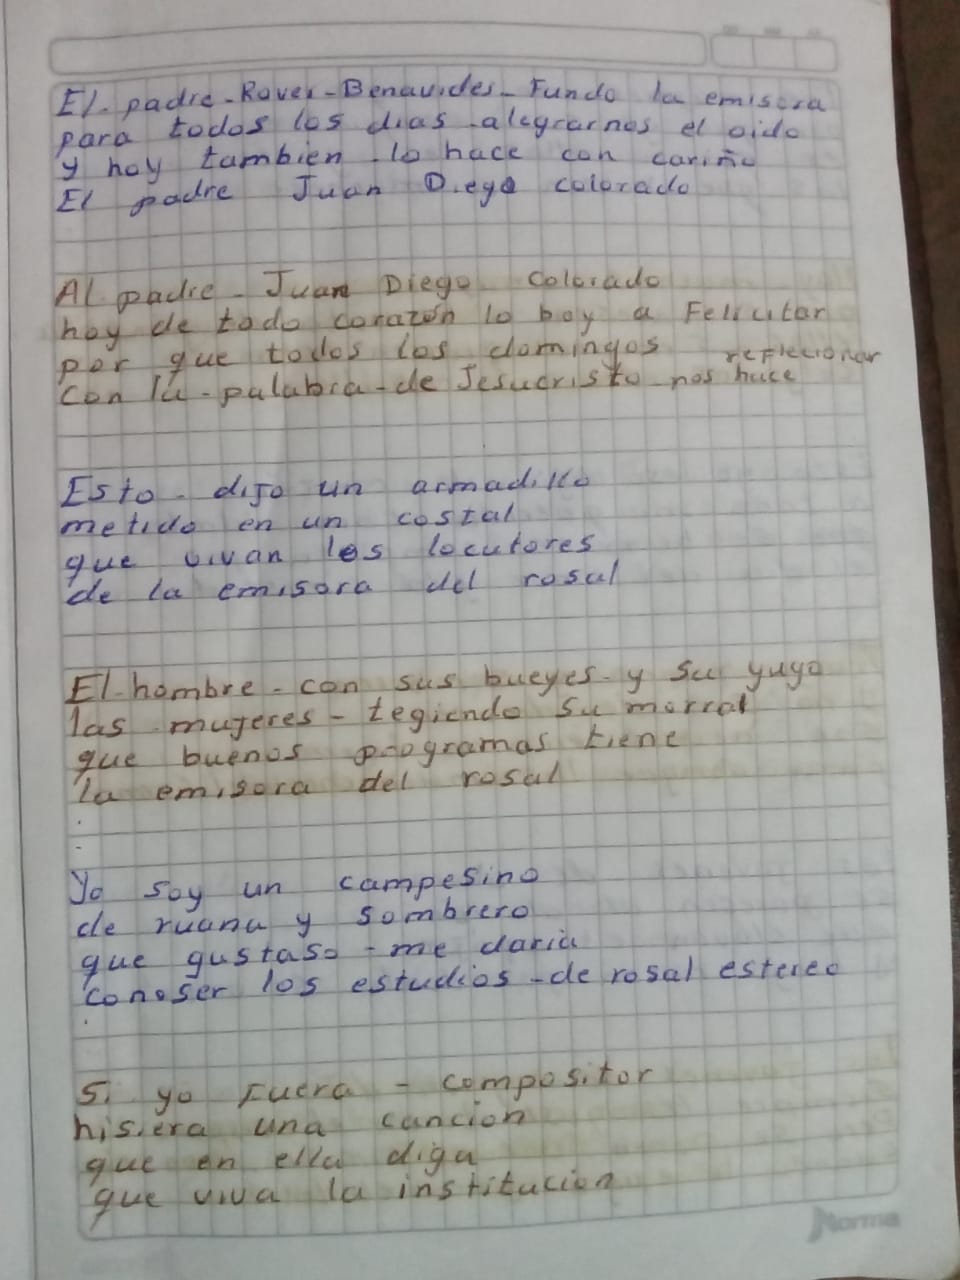 El padre - Rover - Benavides - Fundo la emisora
para todos los dias - alegrarnos el oido
y hoy tambien lo hace con cariño
El padre Juan Diego colorado
Al padre - Juan Diego Colorado
hoy de todo corazón lo boy a Felicitar
por que todos los domingos reflecionar
Con la - palabra - de Jesucristo nos hace
Esto - dijo un armadillo
metido en un costal
que vivan los locutores
de la emisora del rosal
El hombre - con sus bueyes - y su yugo
las mujeres - tegiendo su morral
que buenos programas tiene
la emisora del rosal
Yo soy un campesino
de ruana y sombrero
que gustaso - me daria
conoser los estudios - de rosal estereo
Si yo Fuera - compositor
hisiera una cancion
que en ella diga
que viva la institucion
Norma